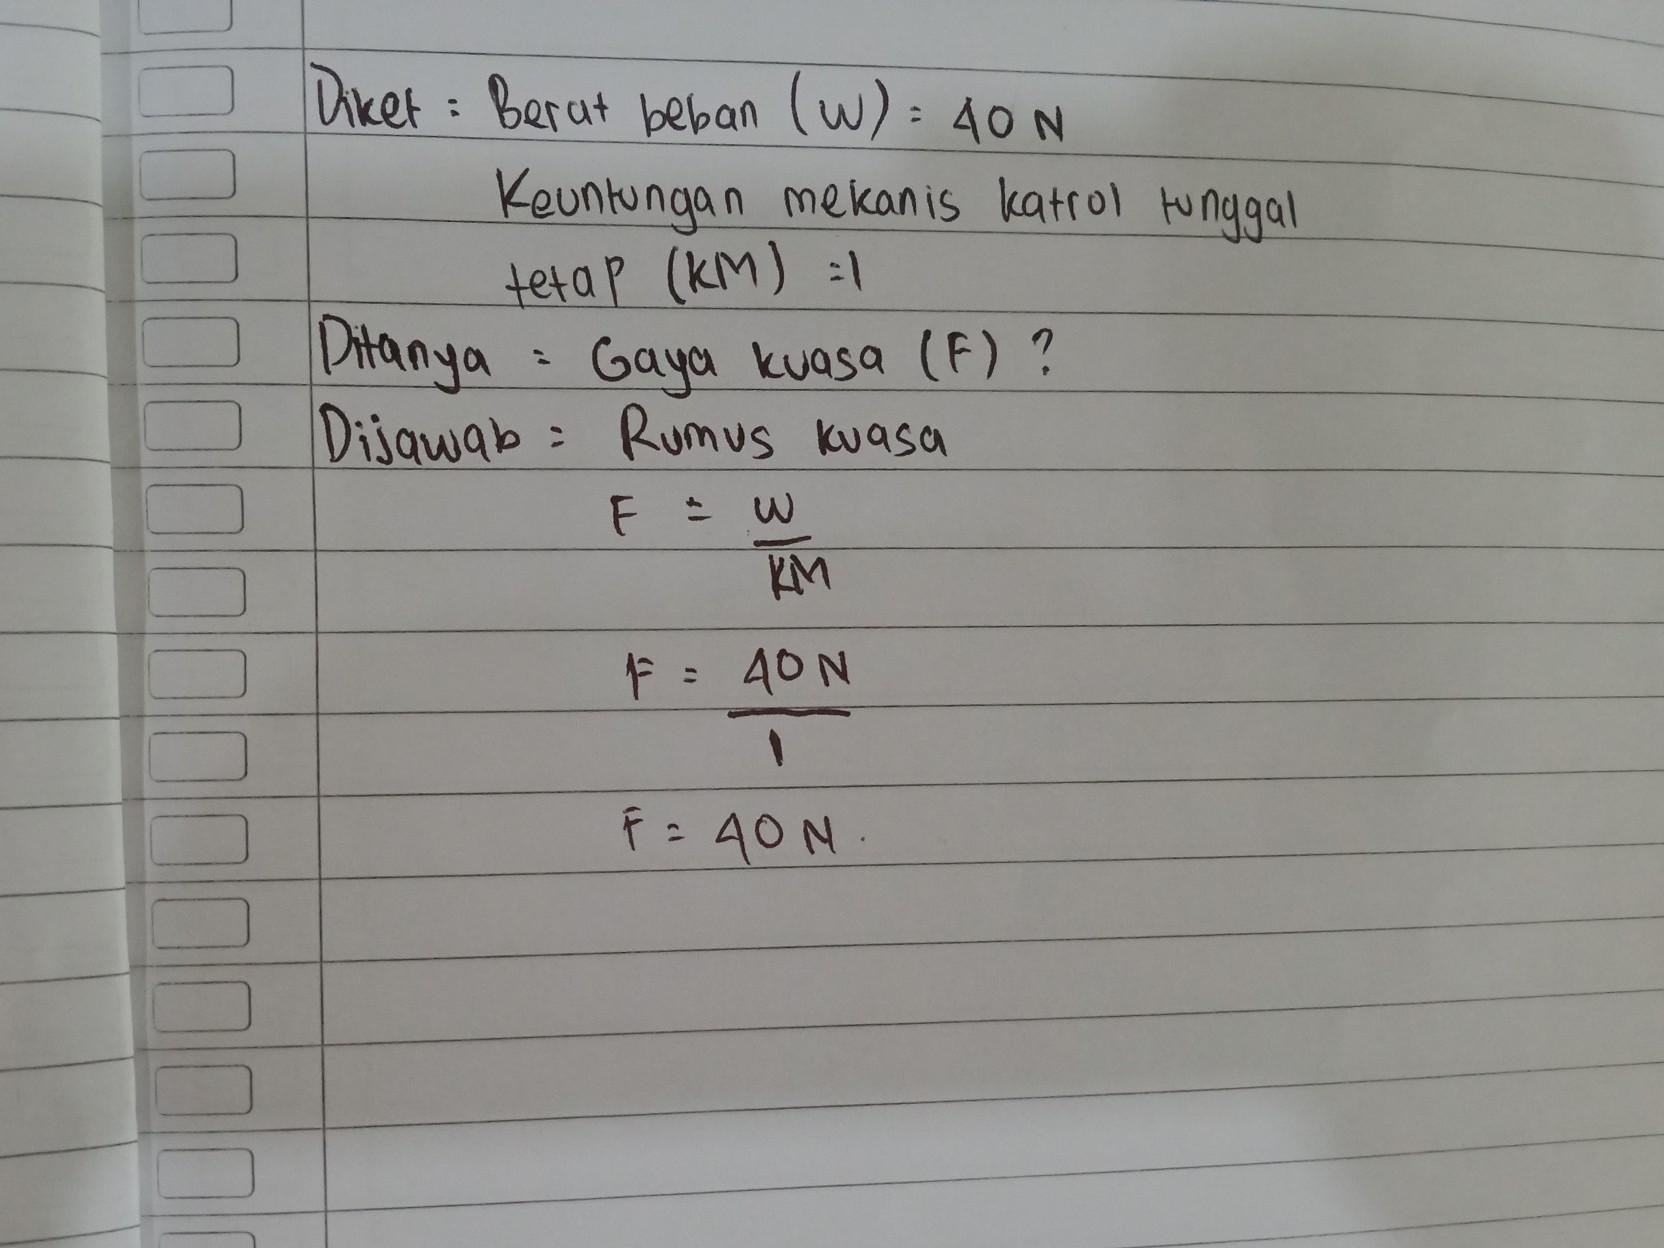 Diket : Berat beban (W) = 40 N
Keuntungan mekanis katrol tunggal
tetap (KM) = 1
Ditanya = Gaya kuasa (F) ?
Dijawab = Rumus kuasa
F = W
KM
F = 40 N
1
F = 40 N.